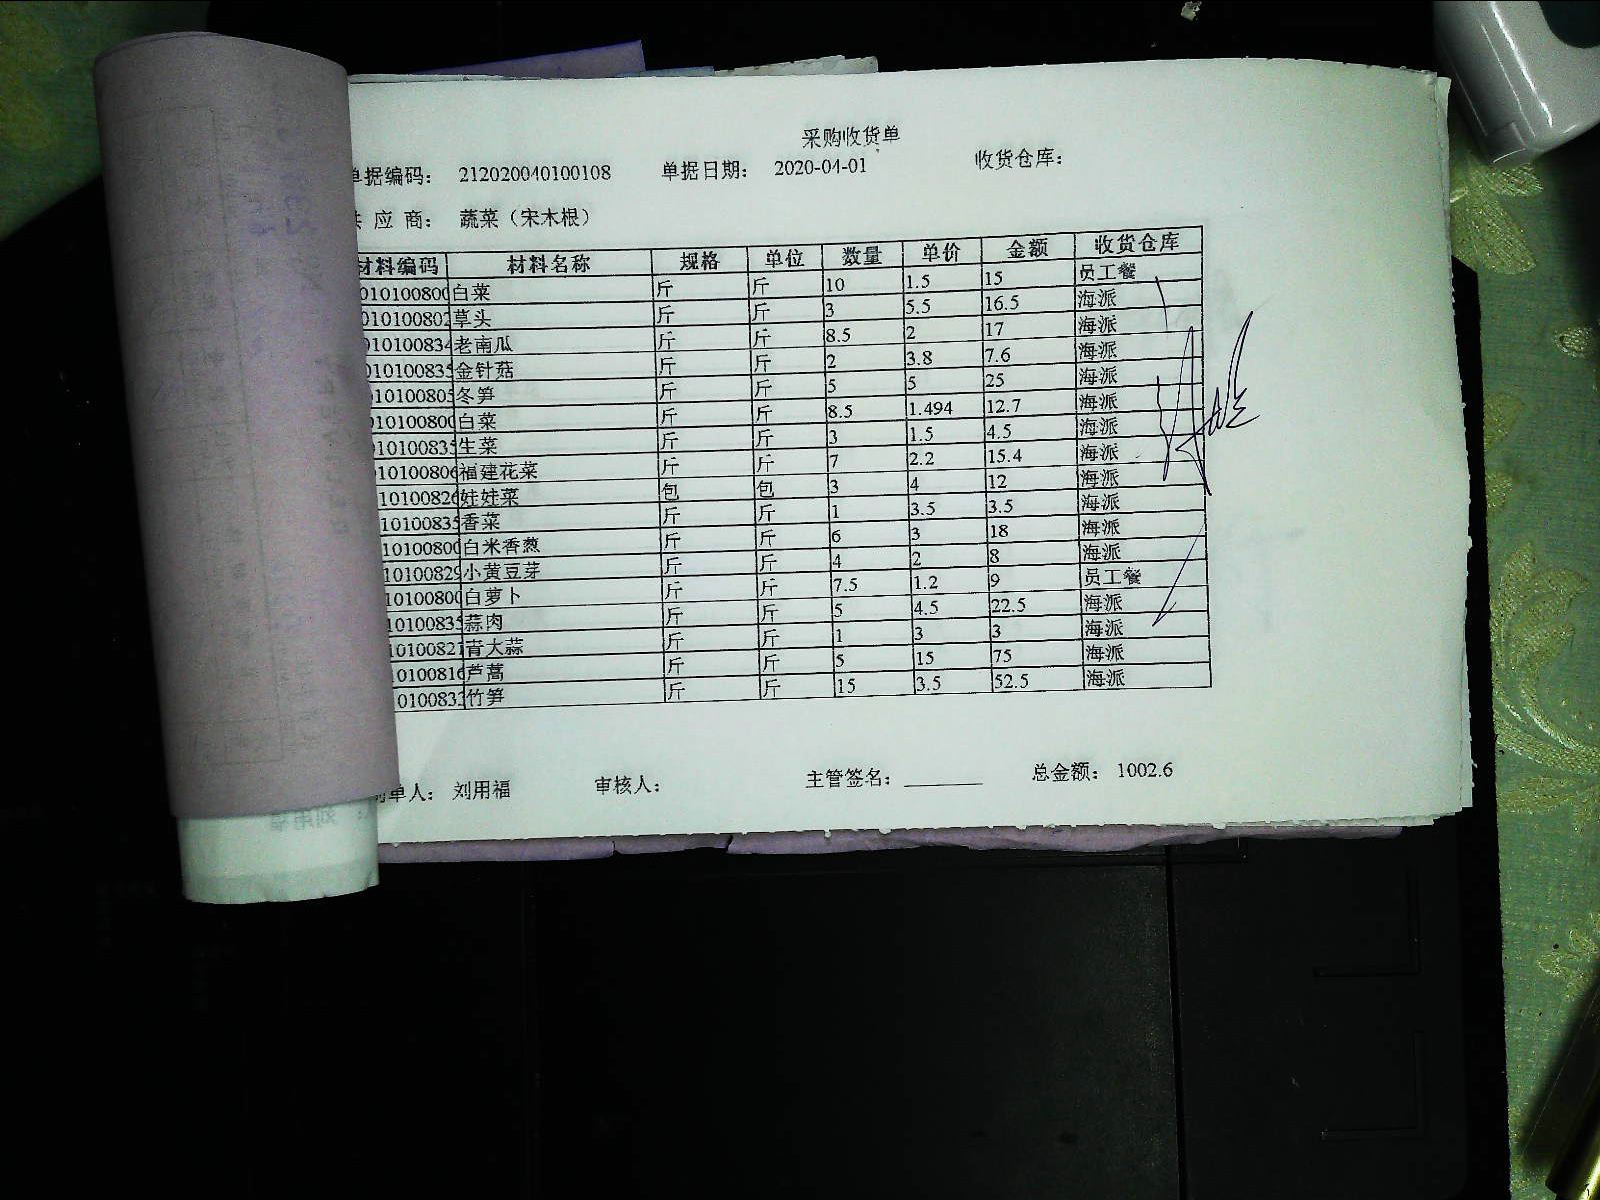 采购收货单
单据编码： 212020040100108 单据日期： 2020-04-01 收货仓库：
应 商： 蔬菜（宋木根）
材料编码 材料名称 规格 单位 数量 单价 金额 收货仓库
010100800 白菜 斤 斤 10 1.5 15 员工餐
010100802 草头 斤 斤 3 5.5 16.5 海派
010100834 老南瓜 斤 斤 8.5 2 17 海派
010100835 金针菇 斤 斤 2 3.8 7.6 海派
010100805 冬笋 斤 斤 5 5 25 海派
010100800 白菜 斤 斤 8.5 1.494 12.7 海派
010100835 生菜 斤 斤 3 1.5 4.5 海派
10100806 福建花菜 斤 斤 7 2.2 15.4 海派
10100826 娃娃菜 包 包 3 4 12 海派
10100835 香菜 斤 斤 1 3.5 3.5 海派
10100800 白米香葱 斤 斤 6 3 18 海派
10100829 小黄豆芽 斤 斤 4 2 8 海派
10100800 白萝卜 斤 斤 7.5 1.2 9 员工餐
10100835 蒜肉 斤 斤 5 4.5 22.5 海派
10100827 青大蒜 斤 斤 1 3 3 海派
10100816 芦蒿 斤 斤 5 15 75 海派
0100833 竹笋 斤 斤 15 3.5 52.5 海派
制单人： 刘用福 审核人： 主管签名： ________ 总金额： 1002.6